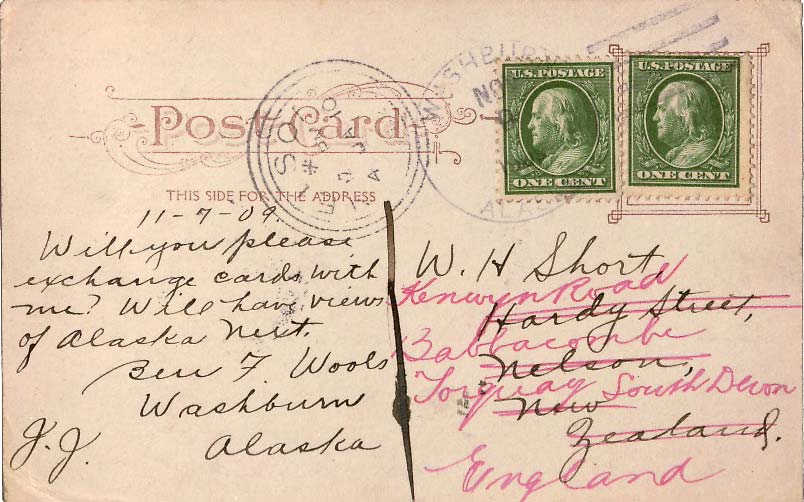 Post Card
THIS SIDE FOR THE ADDRESS
U.S. POSTAGE
ONE CENT
U.S. POSTAGE
ONE CENT
WASHBURN
NO
ALAS
NELSON
11-7-09.
Will you please
exchange cards with
me? Will have views
of Alaska next.
Ben F. Wools
Washburn
Alaska
J.J.
W. H Short,
Kenwyn Road
Hardy Street,
Babbacombe
Nelson,
Torquay South Devon
New
Zealand.
England